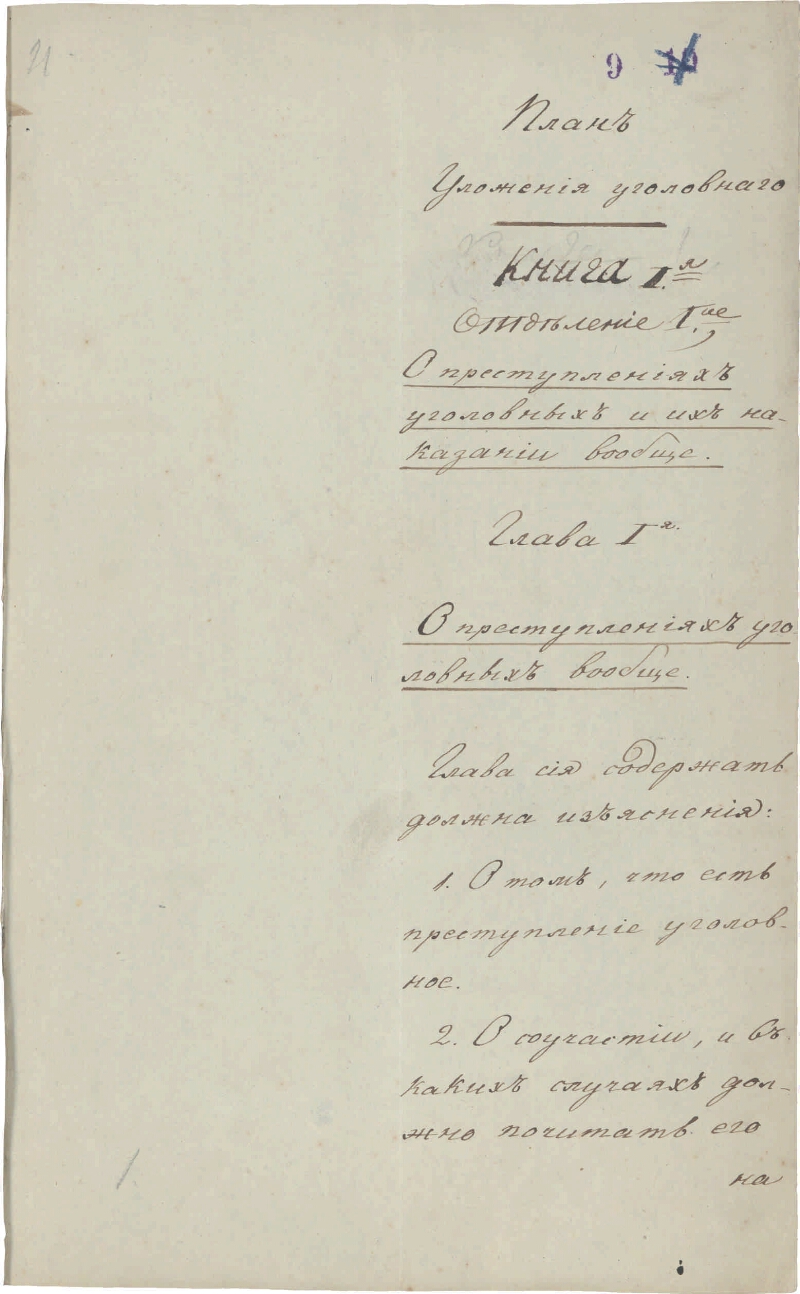 21
9
Планъ
Уложенія уголовнаго
Книга I.я
Отдѣленіе I.ое
О преступленіяхъ
уголовныхъ и ихъ на-
казаніи вообще.
Глава Iя.
О преступленіяхъ уго
ловныхъ вообще.
Глава сія содержать
должна изъясненія:
1. О томъ, что есть
преступленіе уголов-
ное.
2. О соучастіи, и въ
какихъ случаяхъ дол-
жно почитать его
на
1.